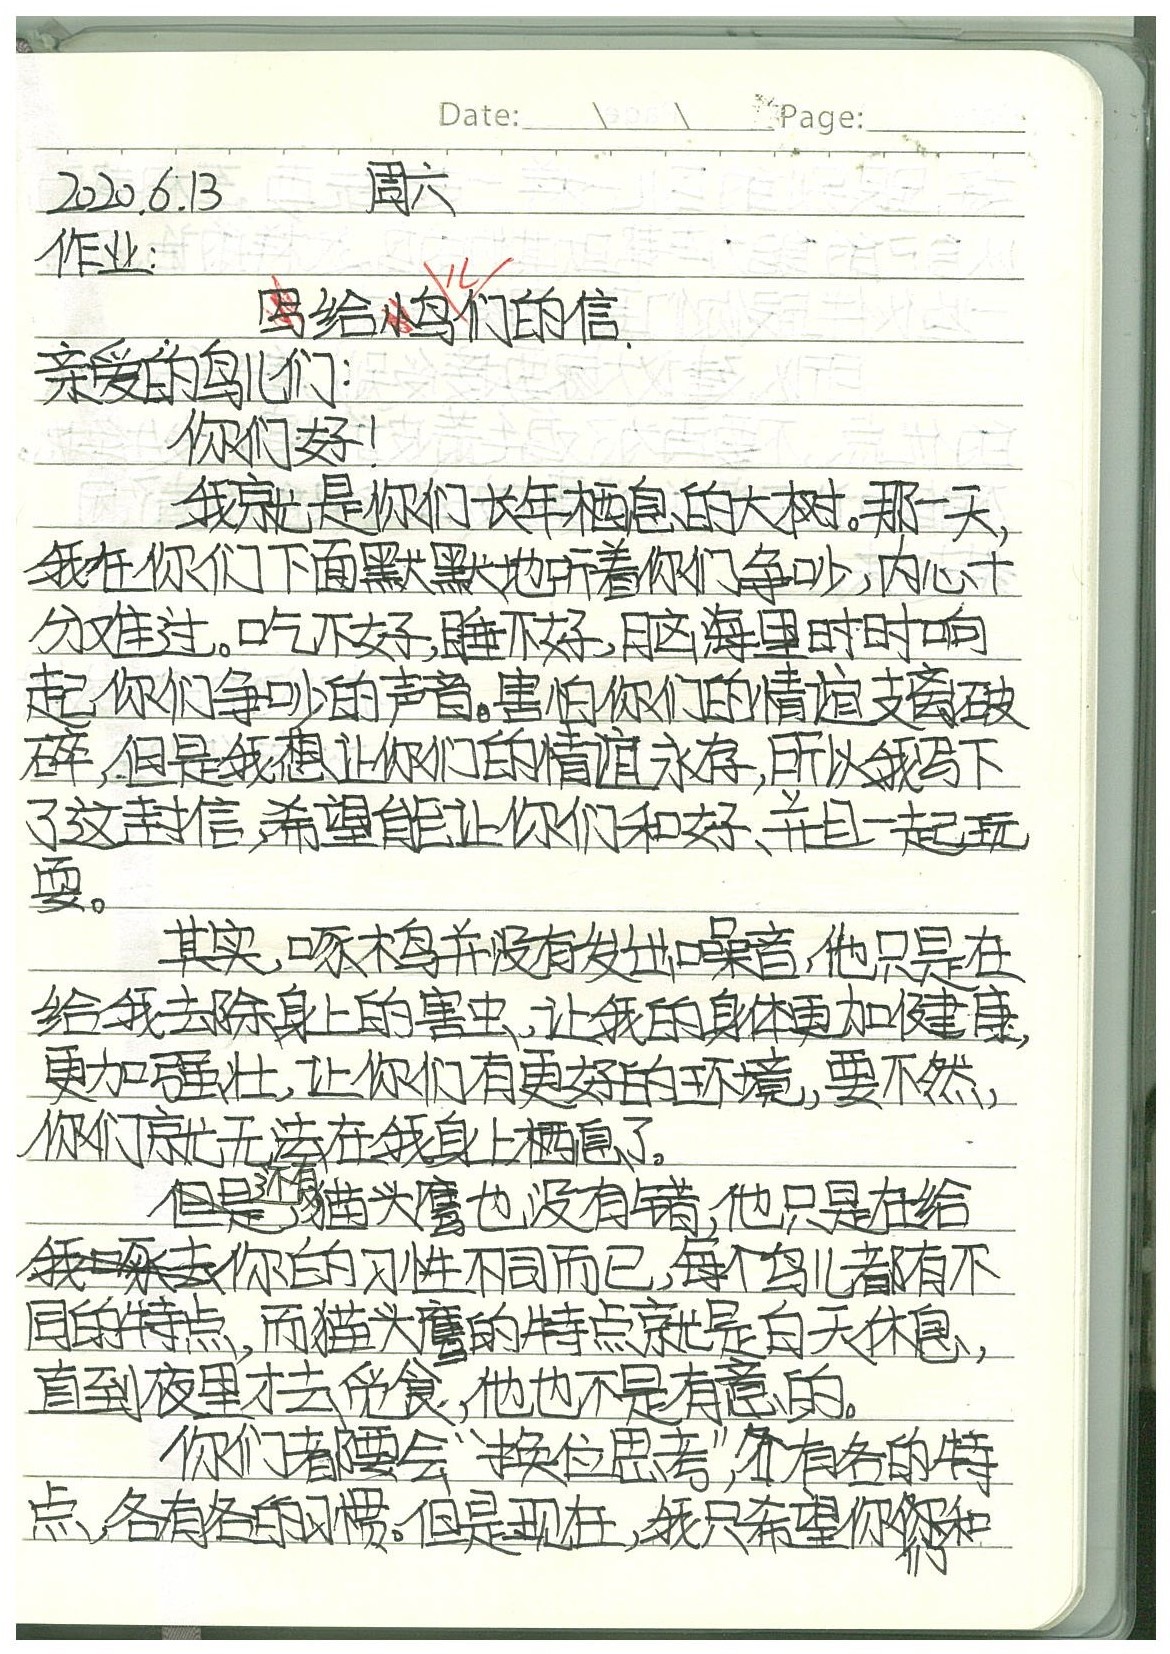 Date: \ \ Page:
2020.6.13 周六
作业:
给鸟儿们的信.
亲爱的鸟儿们:
你们好!
我就是你们长年栖息的大树。那一天,
我在你们下面默默地听着你们争吵,内心十
分难过。吃不好,睡不好,脑海里时时响
起你们争吵的声音。害怕你们的情谊支离破
碎,但是我想让你们的情谊永存,所以我写下
了这封信,希望能让你们和好、并且一起玩
耍。
其实,啄木鸟并没有发出噪音,他只是在
给我去除身上的害虫,让我的身体更加健康,
更加强壮,让你们有更好的环境,要不然,
你们就无法在我身上栖息了。
还有猫头鹰也没有错,他只是在给
你的习性不同而已,每个鸟儿都有不
同的特点,而猫头鹰的特点就是白天休息,
直到夜里才去觅食,他也不是有意的。
你们都要会“换位思考”,各有各的特
点,各有各的习惯。但是现在,我只希望你们和